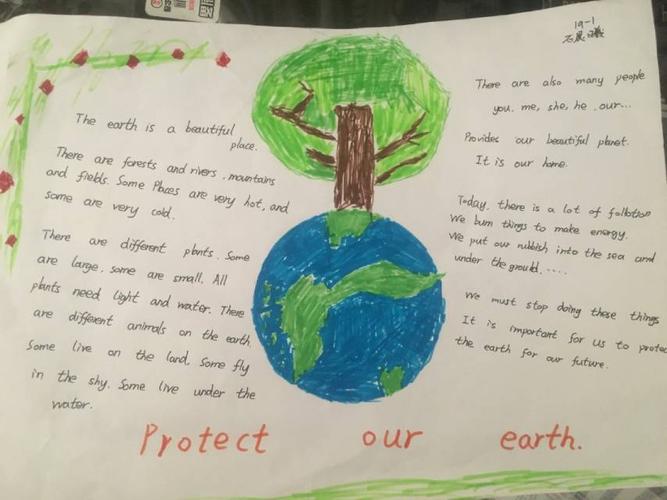 19-1
The earth is a beautiful
place.
There are forests and rivers, mountains
and fields. Some Places are very hot, and
some are very cold.
There are different plants. Some
are large, some are small. All
plants need light and water. There
are different animals on the earth
Some live on the land. Some fly
in the shy. Some live under the
water.
There are also many people
you, me, she, he, our...
Provides our beautiful planet.
It is our home.
Today, there is a lot of follotion
We burn things to make energy.
We put our rubbish into the sea and
under the grould.....
We must stop doing these things
It is important for us to protec
the earth for our future.
Protect our earth.